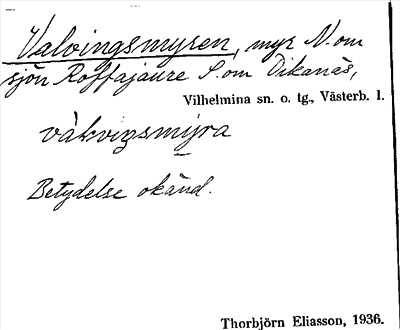 Valvingsmyren, myr N. om
sjön Roffajaure S. om Dikanäs,
Vilhelmina sn. o. tg., Västerb. l.
Betydelse okänd.
Thorbjörn Eliasson, 1936.